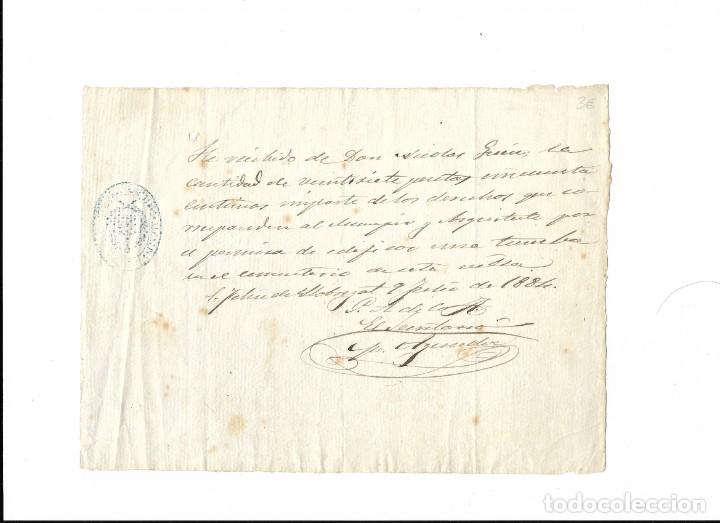 3€
He recibido de Don Nicolas la
cantidad de veintisiete pesetas cincuenta
centimos importe de los derechos que co-
rresponden al Municipio y Arquitecto por
el permiso de edificar una tumba
en el cementerio de esta
S. Feliu de Llobregat 9 de 1884.
P. A. del A
El Secretario
todocoleccion
todocoleccion.net